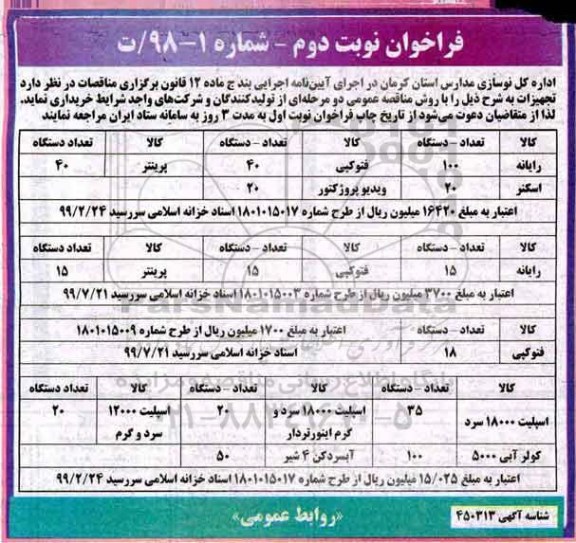 فراخوان نوبت دوم - شماره ۱-۹۸/ت
اداره کل نوسازی مدارس استان کرمان در اجرای آیین‌نامه اجرایی بند ج ماده ۱۲ قانون برگزاری مناقصات در نظر دارد
تجهیزات به شرح ذیل را با روش مناقصه عمومی دو مرحله‌ای از تولیدکنندگان و شرکت‌های واجد شرایط خریداری نماید.
لذا از متقاضیان دعوت می‌شود از تاریخ چاپ فراخوان نوبت اول به مدت ۳ روز به سامانه ستاد ایران مراجعه نمایند
کالا تعداد - دستگاه کالا تعداد - دستگاه کالا تعداد دستگاه
رایانه ۱۰۰ فتوکپی ۴۰ پرینتر ۴۰
اسکنر ۲۰ ویدیو پروژکتور ۲۰
اعتبار به مبلغ ۱۶۴۲۰ میلیون ریال از طرح شماره ۱۸۰۱۰۱۵۰۱۷ اسناد خزانه اسلامی سررسید ۹۹/۲/۲۴
کالا تعداد - دستگاه کالا تعداد - دستگاه کالا تعداد دستگاه
رایانه ۱۵ فتوکپی ۱۵ پرینتر ۱۵
اعتبار به مبلغ ۳۷۰۰ میلیون ریال از طرح شماره ۱۸۰۱۰۱۵۰۰۳ اسناد خزانه اسلامی سررسید ۹۹/۷/۲۱
کالا تعداد - دستگاه اعتبار به مبلغ ۱۷۰۰ میلیون ریال از طرح شماره ۱۸۰۱۰۱۵۰۰۹
فتوکپی ۱۸ اسناد خزانه اسلامی سررسید ۹۹/۷/۲۱
کالا تعداد - دستگاه کالا تعداد - دستگاه کالا تعداد دستگاه
اسپلیت ۱۸۰۰۰ سرد ۳۵ اسپلیت ۱۸۰۰۰ سرد و گرم اینورتردار ۲۰ اسپلیت ۱۲۰۰۰ سرد و گرم ۲۰
کولر آبی ۵۰۰۰ ۱۰۰ آبسردکن ۴ شیر ۵۰
اعتبار به مبلغ ۱۵/۰۲۵ میلیون ریال از طرح شماره ۱۸۰۱۰۱۵۰۱۷ اسناد خزانه اسلامی سررسید ۹۹/۲/۲۴
شناسه آگهی ۴۵۰۳۱۳
«روابط عمومی»
ParsNamadData